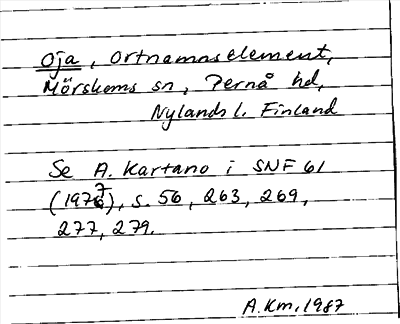 Oja, Ortnamnselement,
Mörskoms sn, Pernå hd,
Nylands l. Finland
Se A. Kartano i SNF 61
(1977), s. 56, 263, 269,
277, 279.
A.Km, 1987